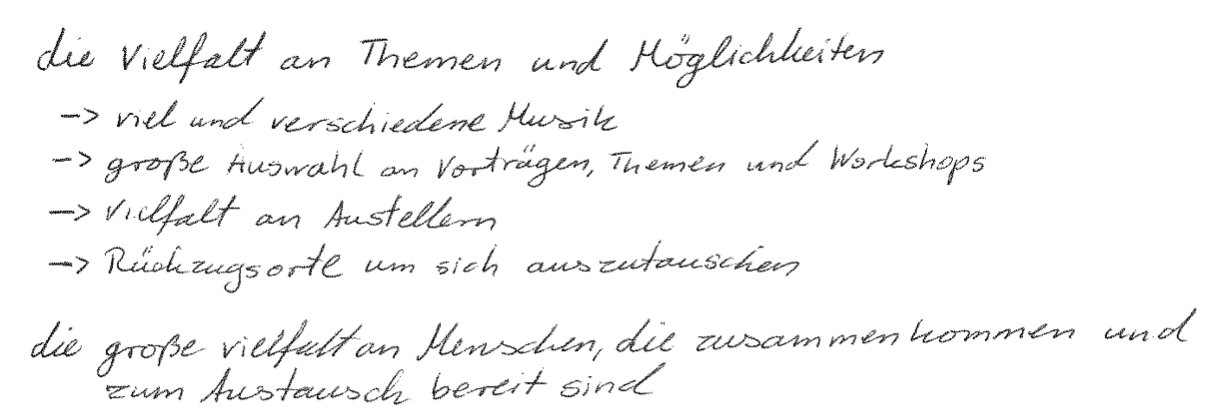 die Vielfalt an Themen und Möglichkeiten
-> viel und verschiedene Musik
-> große Auswahl an Vorträgen, Themen und Workshops
-> Vielfalt an Austellern
-> Rückzugsorte um sich auszutauschen
die große vielfalt an Menschen, die zusammenkommen und
zum Austausch bereit sind